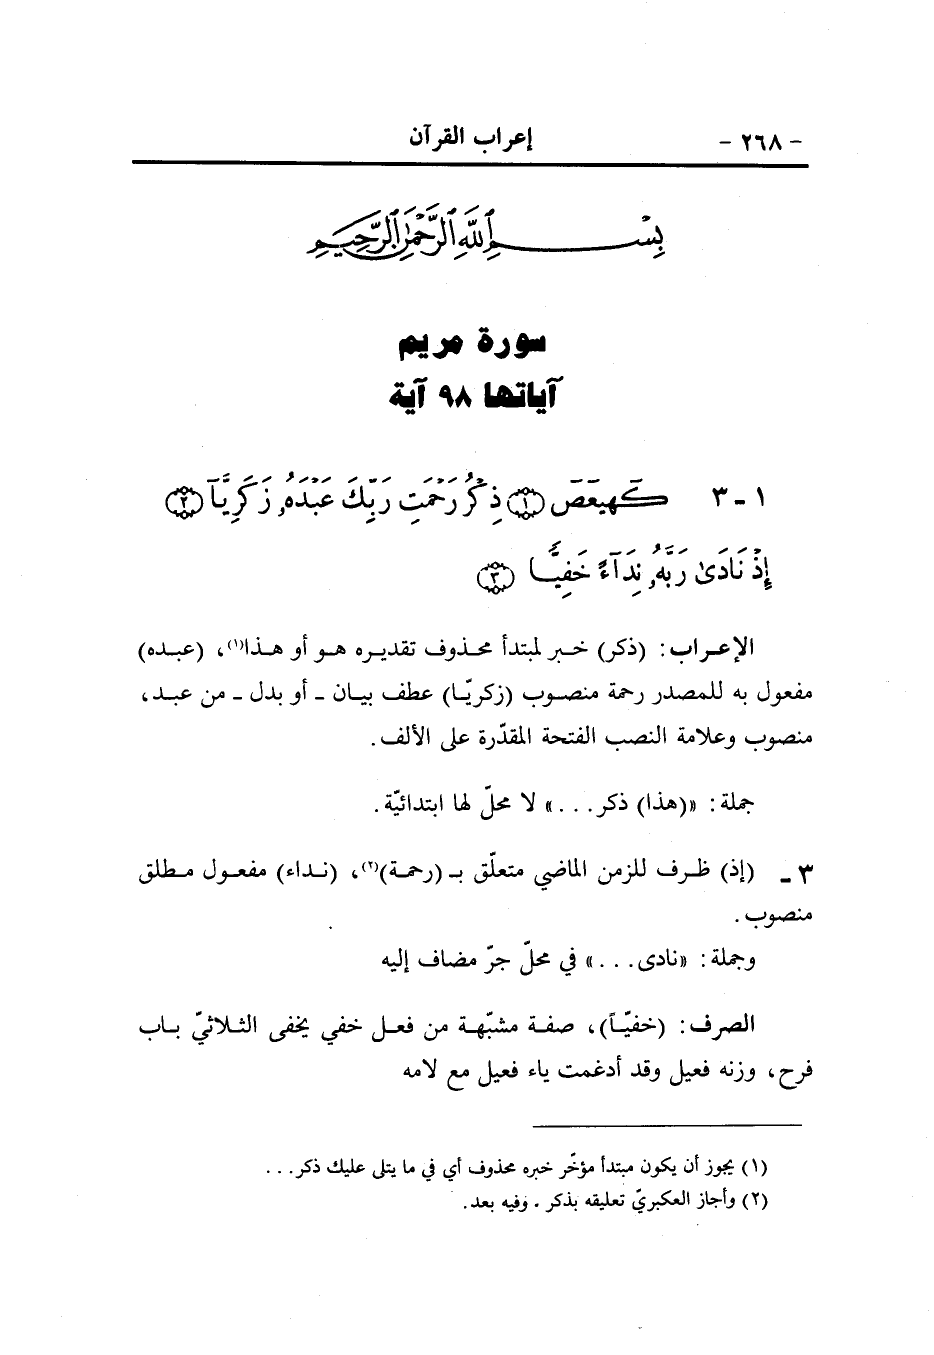 - ٢٦٨ - إعراب القرآن
بِسْمِ ٱللَّهِ ٱلرَّحْمَٰنِ ٱلرَّحِيمِ
سورة مريم
آياتها ٩٨ آية
١ - ٣ كٓهيعٓصٓ ﴿١﴾ ذِكْرُ رَحْمَتِ رَبِّكَ عَبْدَهُۥ زَكَرِيَّآ ﴿٢﴾
إِذْ نَادَىٰ رَبَّهُۥ نِدَآءً خَفِيًّا ﴿٣﴾
الإعراب: (ذكر) خبر لمبتدأ محذوف تقديره هو أو هذا(١)، (عبده)
مفعول به للمصدر رحمة منصوب (زكريّا) عطف بيان ـ أو بدل ـ من عبد،
منصوب وعلامة النصب الفتحة المقدّرة على الألف.
جملة: «(هذا) ذكر...» لا محلّ لها ابتدائيّة.
٣ ـ (إذ) ظرف للزمن الماضي متعلّق بـ (رحمة)(٢)، (نداء) مفعول مطلق
منصوب.
وجملة: «نادى...» في محلّ جرّ مضاف إليه
الصرف: (خفيّاً)، صفة مشبّهة من فعل خفي يخفى الثلاثيّ باب
فرح، وزنه فعيل وقد أدغمت ياء فعيل مع لامه
(١) يجوز أن يكون مبتدأ مؤخّر خبره محذوف أي في ما يتلى عليك ذكر...
(٢) وأجاز العكبريّ تعليقه بذكر. وفيه بعد.